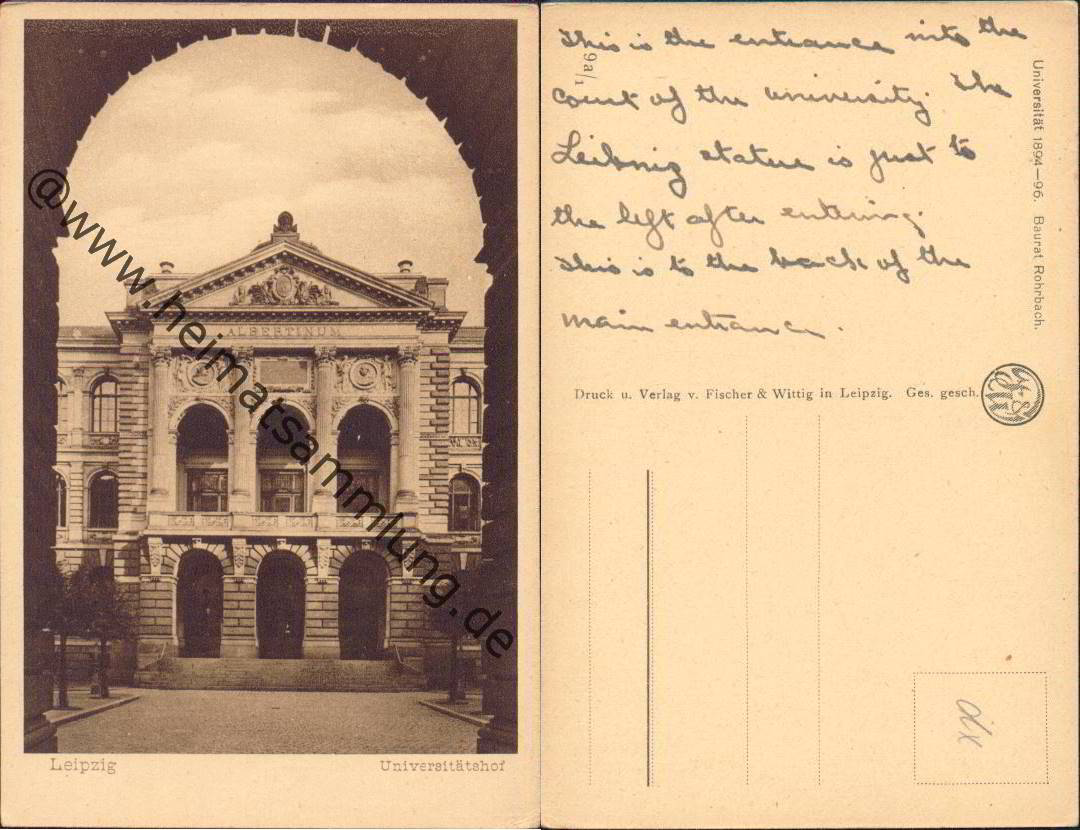 ALBERTINUM
Leipzig
Universitätshof
@www.heimatsammlung.de
This is the entrance into the
court of the university. The
Leibniz statue is just to
the left after entering.
This is to the back of the
main entrance.
9a/1
Universität 1894—96. Baurat Rohrbach.
Druck u. Verlag v. Fischer & Wittig in Leipzig. Ges. gesch.